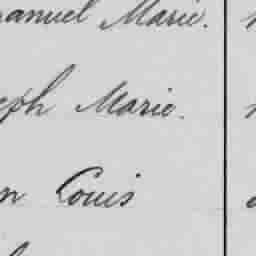 anuel Marie.
eph Marie.
n Louis